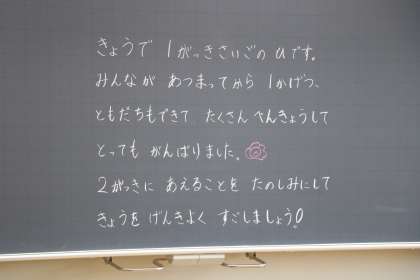 きょうで 1がっきさいごの ひです。
みんなが あつまってから 1かげつ、
ともだちもできて たくさん べんきょうして
とっても がんばりました。
2がっきに あえることを たのしみにして
きょうを げんきよく すごしましょう!